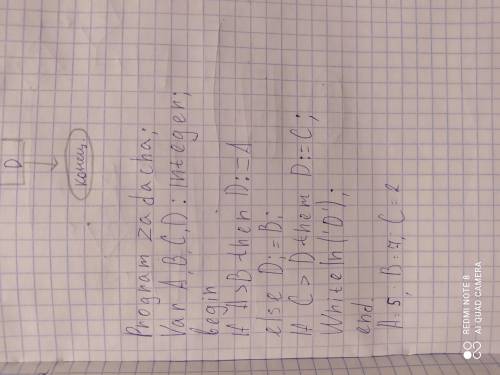 D
конец
Program zadacha;
Var A,B,C,D: integer;
begin
If A>B then D:=A
else D:=B;
If C>D them D:=C;
Writeln('D');
end
A=5; B=7; C=2
REDMI NOTE 8
AI QUAD CAMERA